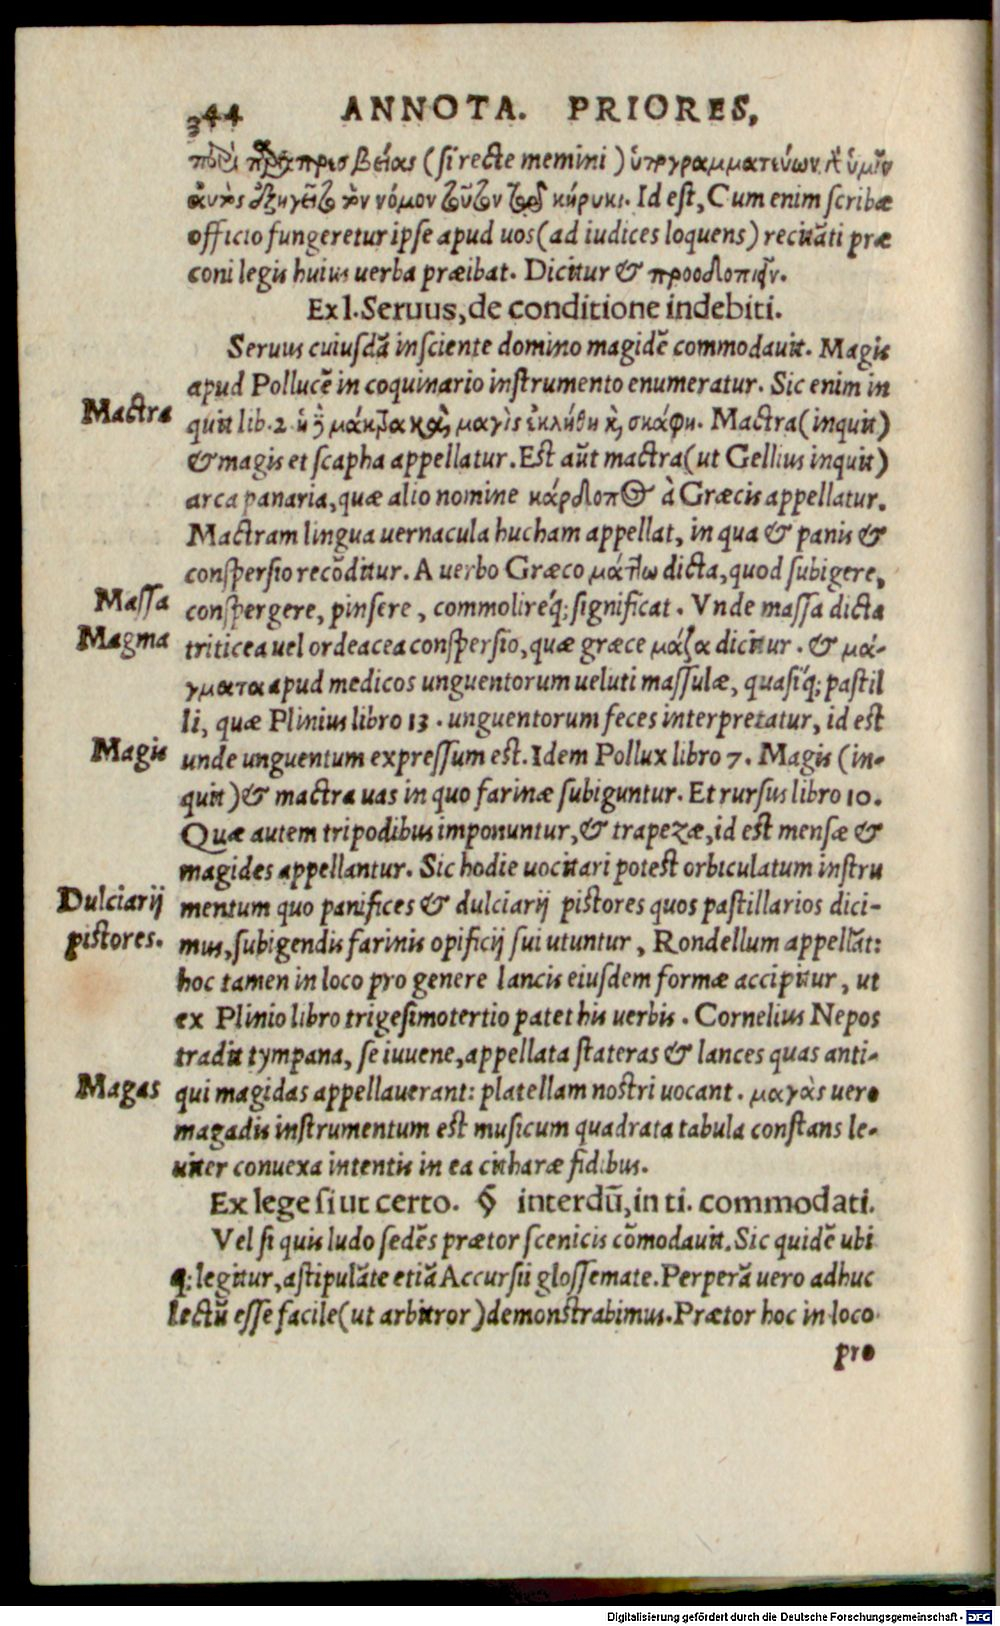 344 ANNOTA. PRIORES,
πρεσβείας (si recte memini) ὑπογραμματεύων
τὸν νόμον τῷ κήρυκι. Id est, Cum enim scribæ
officio fungeretur ipse apud uos (ad iudices loquens) recitāti præ
coni legis huius uerba præibat. Dicitur &
Ex l. Seruus, de conditione indebiti.
Seruus cuiusdā insciente domino magidē commodauit. Magis
apud Pollucē in coquinario instrumento enumeratur. Sic enim in
Mactra
quit lib. 2. ἡ μάκτρα καὶ μαγὶς ἐκλήθη καὶ σκάφη. Mactra (inquit)
& magis et scapha appellatur. Est aūt mactra (ut Gellius inquit)
arca panaria, quæ alio nomine κάρδοπος à Græcis appellatur.
Mactram lingua uernacula hucham appellat, in qua & panis &
conspersio recōditur. A uerbo Græco μάττω dicta, quod subigere,
Massa
conspergere, pinsere, commolireq́; significat. Vnde massa dicta
Magma
triticea uel ordeacea conspersio, quæ græce μάζα dicitur. & μά-
γματα apud medicos unguentorum ueluti massulæ, quasiq́; pastil
li, quæ Plinius libro 13. unguentorum feces interpretatur, id est
Magis
unde unguentum expressum est. Idem Pollux libro 7. Magis (in-
quit) & mactra uas in quo farinæ subiguntur. Et rursus libro 10.
Quæ autem tripodibus imponuntur, & trapezæ, id est mensæ &
magides appellantur. Sic hodie uocitari potest orbiculatum instru
Dulciarij
mentum quo panifices & dulciarij pistores quos pastillarios dici-
pistores.
mus, subigendis farinis opificij sui utuntur, Rondellum appellāt:
hoc tamen in loco pro genere lancis eiusdem formæ accipitur, ut
ex Plinio libro trigesimotertio patet his uerbis. Cornelius Nepos
tradit tympana, se iuuene, appellata stateras & lances quas anti-
Magas
qui magidas appellauerant: platellam nostri uocant. μαγὰς uero
magadis instrumentum est musicum quadrata tabula constans le-
uiter conuexa intentis in ea citharæ fidibus.
Ex lege si ut certo. § interdū, in ti. commodati.
Vel si quis ludo sedēs prætor scenicis cōmodauit. Sic quidē ubi
q; legitur, astipulāte etiā Accursii glossemate. Perperā uero adhuc
lectū esse facile (ut arbitror) demonstrabimus. Prætor hoc in loco
pro
Digitalisierung gefördert durch die Deutsche Forschungsgemeinschaft - DFG